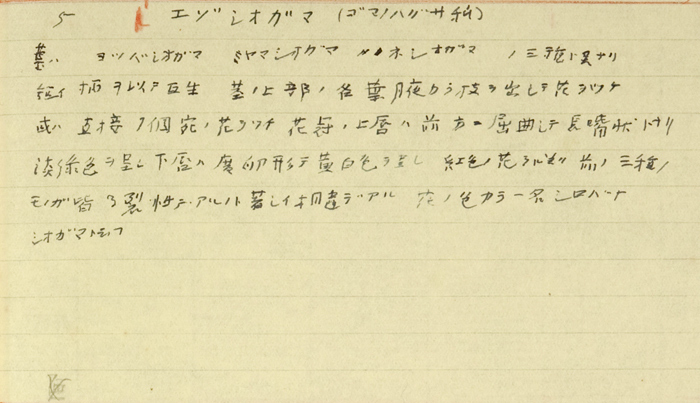 5 エゾシオガマ (ゴマノハグサ科)
葉ハ ヨツバシオガマ ミヤマシオガマ ハンカイシオガマ ノ三種ト異ナリ
短イ柄ヲ以テ互生 茎ノ上部ノ各葉腋カラ枝ヲ出シテ花ヲツケ
或ハ直接1個宛ノ花ヲツケ 花冠ノ上唇ハ前方ニ屈曲シテ長嘴状トナリ
淡緑色ヲ呈シ下唇ハ広卵形デ黄白色ヲ呈シ 紅色ノ花 前ノ三種ノ
モノガ皆 裂性デアルノト著シイ相違デアル 花ノ色カラ一名シロバナ
シオガマトモ云フ